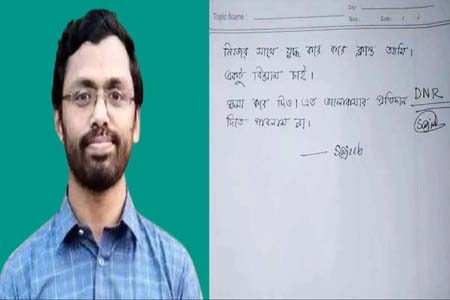 Day
Topic Name :
Date : / /
নিজের সাথে যুদ্ধ করে করে ক্লান্ত আমি।
একটু বিশ্রাম চাই।
ক্ষমা করে দিও। এত ভালোবাসার প্রতিদান
দিতে পারলাম না।
DNR
Sajib
— Sajeeb